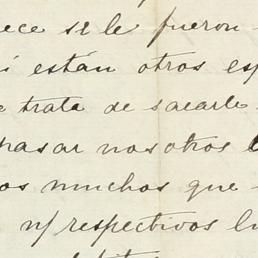 ece se le fueron
í están otros esp
e trata de sacarle
pasar nosotros
os muchos que
n/ respectivos lu